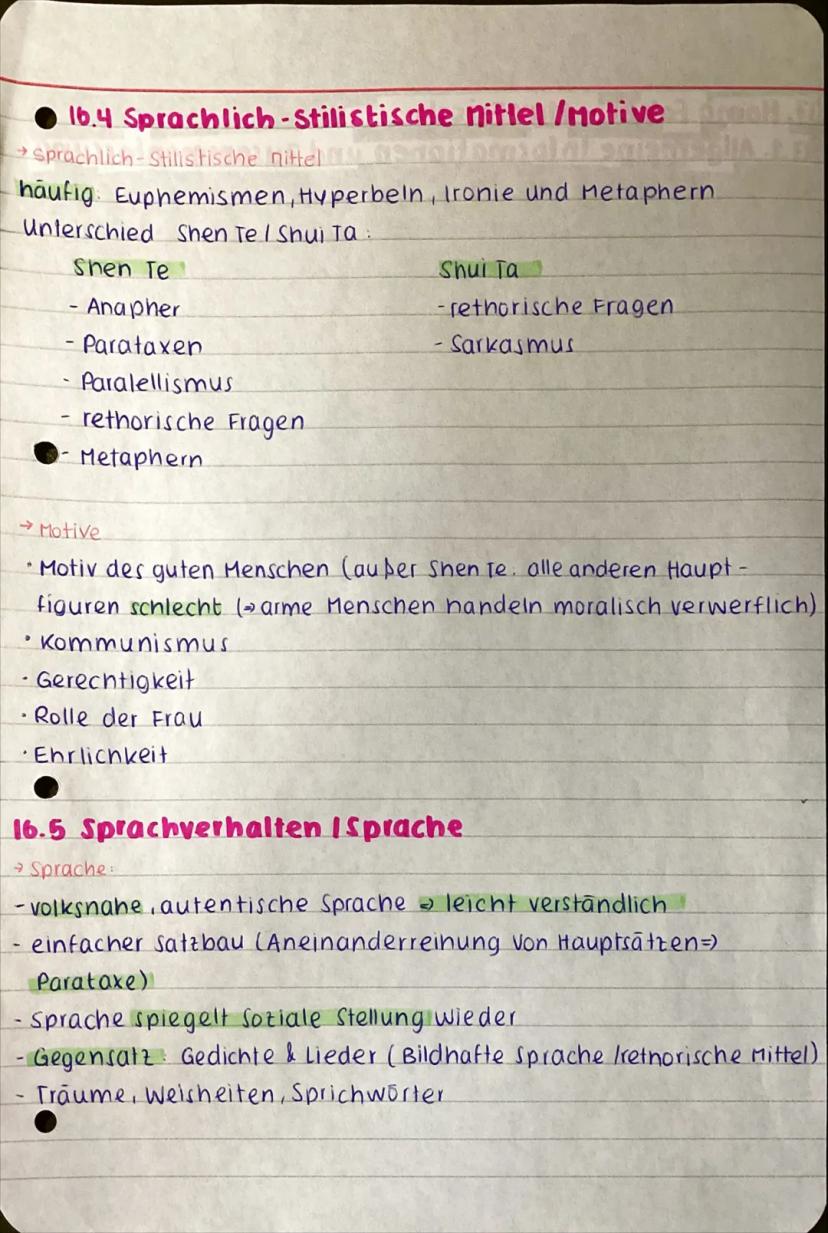 16.4 Sprachlich-Stilistische Mittel/Motive
→ Sprachlich-Stilistische Mittel
häufig: Euphemismen, Hyperbeln, Ironie und Metaphern
Unterschied Shen Te / Shui Ta:
Shen Te Shui Ta
- Anapher - rethorische Fragen
- Parataxen - Sarkasmus
- Paralellismus
- rethorische Fragen
- Metaphern
→ Motive
• Motiv des guten Menschen (außer Shen Te. alle anderen Haupt-
figuren schlecht (⇒ arme Menschen handeln moralisch verwerflich)
• Kommunismus
• Gerechtigkeit
• Rolle der Frau
• Ehrlichkeit
16.5 Sprachverhalten / Sprache
→ Sprache:
- volksnahe, autentische Sprache ⇒ leicht verständlich
- einfacher Satzbau (Aneinanderreinung von Hauptsätzen ⇒
Parataxe)
- Sprache spiegelt soziale Stellung wieder
- Gegensatz: Gedichte & Lieder (Bildhafte Sprache / rethorische Mittel)
- Träume, Weisheiten, Sprichwörter